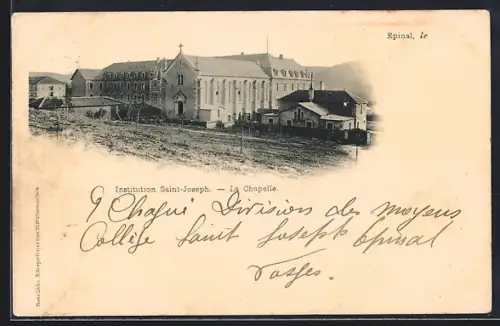 Epinal, le
Institution Saint-Joseph. — La Chapelle.
Division des moyens
Collège Saint Joseph Epinal
Vosges.